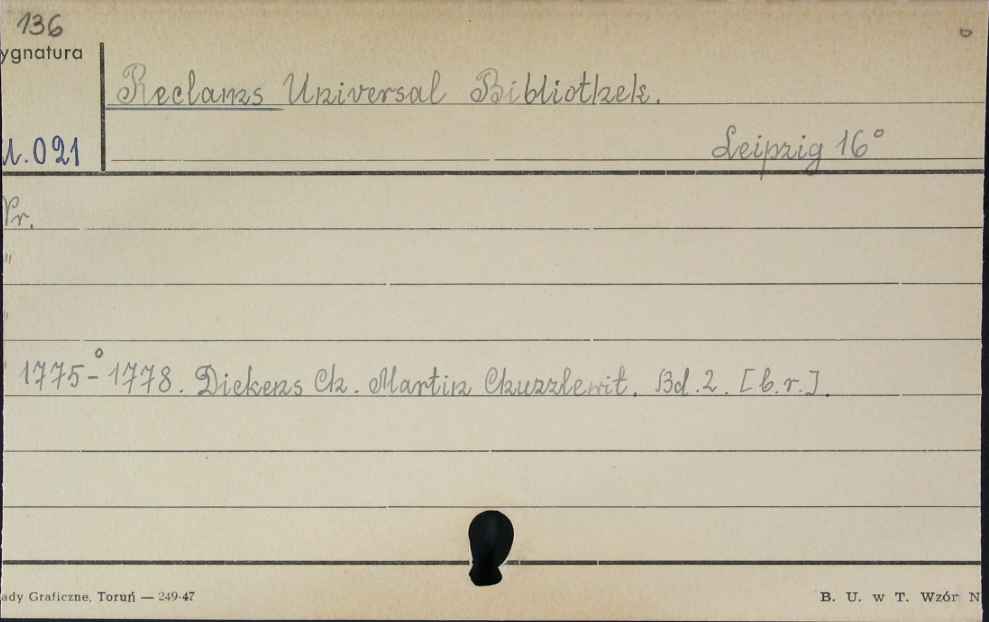 136
ygnatura
Reclams Universal Bibliothek.
U.021
Leipzig 16°
Nr.
"
"
" 1775-1778. Dickens Ch. Martin Chuzzlewit. Bd. 2. [b.r.].
ady Graficzne, Toruń — 249-47
B. U. w T. Wzór N